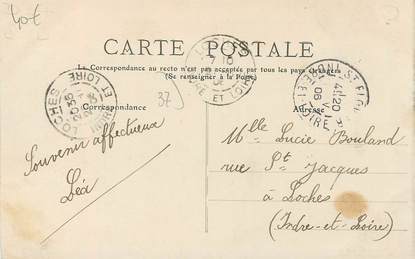 40€
CARTE POSTALE
La Correspondance au recto n'est pas acceptée par tous les pays étrangers
(Se renseigner à la Poste)
Correspondance
37
LOCHES
INDRE ET LOIRE
INDRE ET LOIRE
4 20
06
INDRE ET LOIRE
Souvenir affectueux
Léa
Mlle Lucie Bouland
rue St Jacques
à Loches
(Indre-et-Loire)